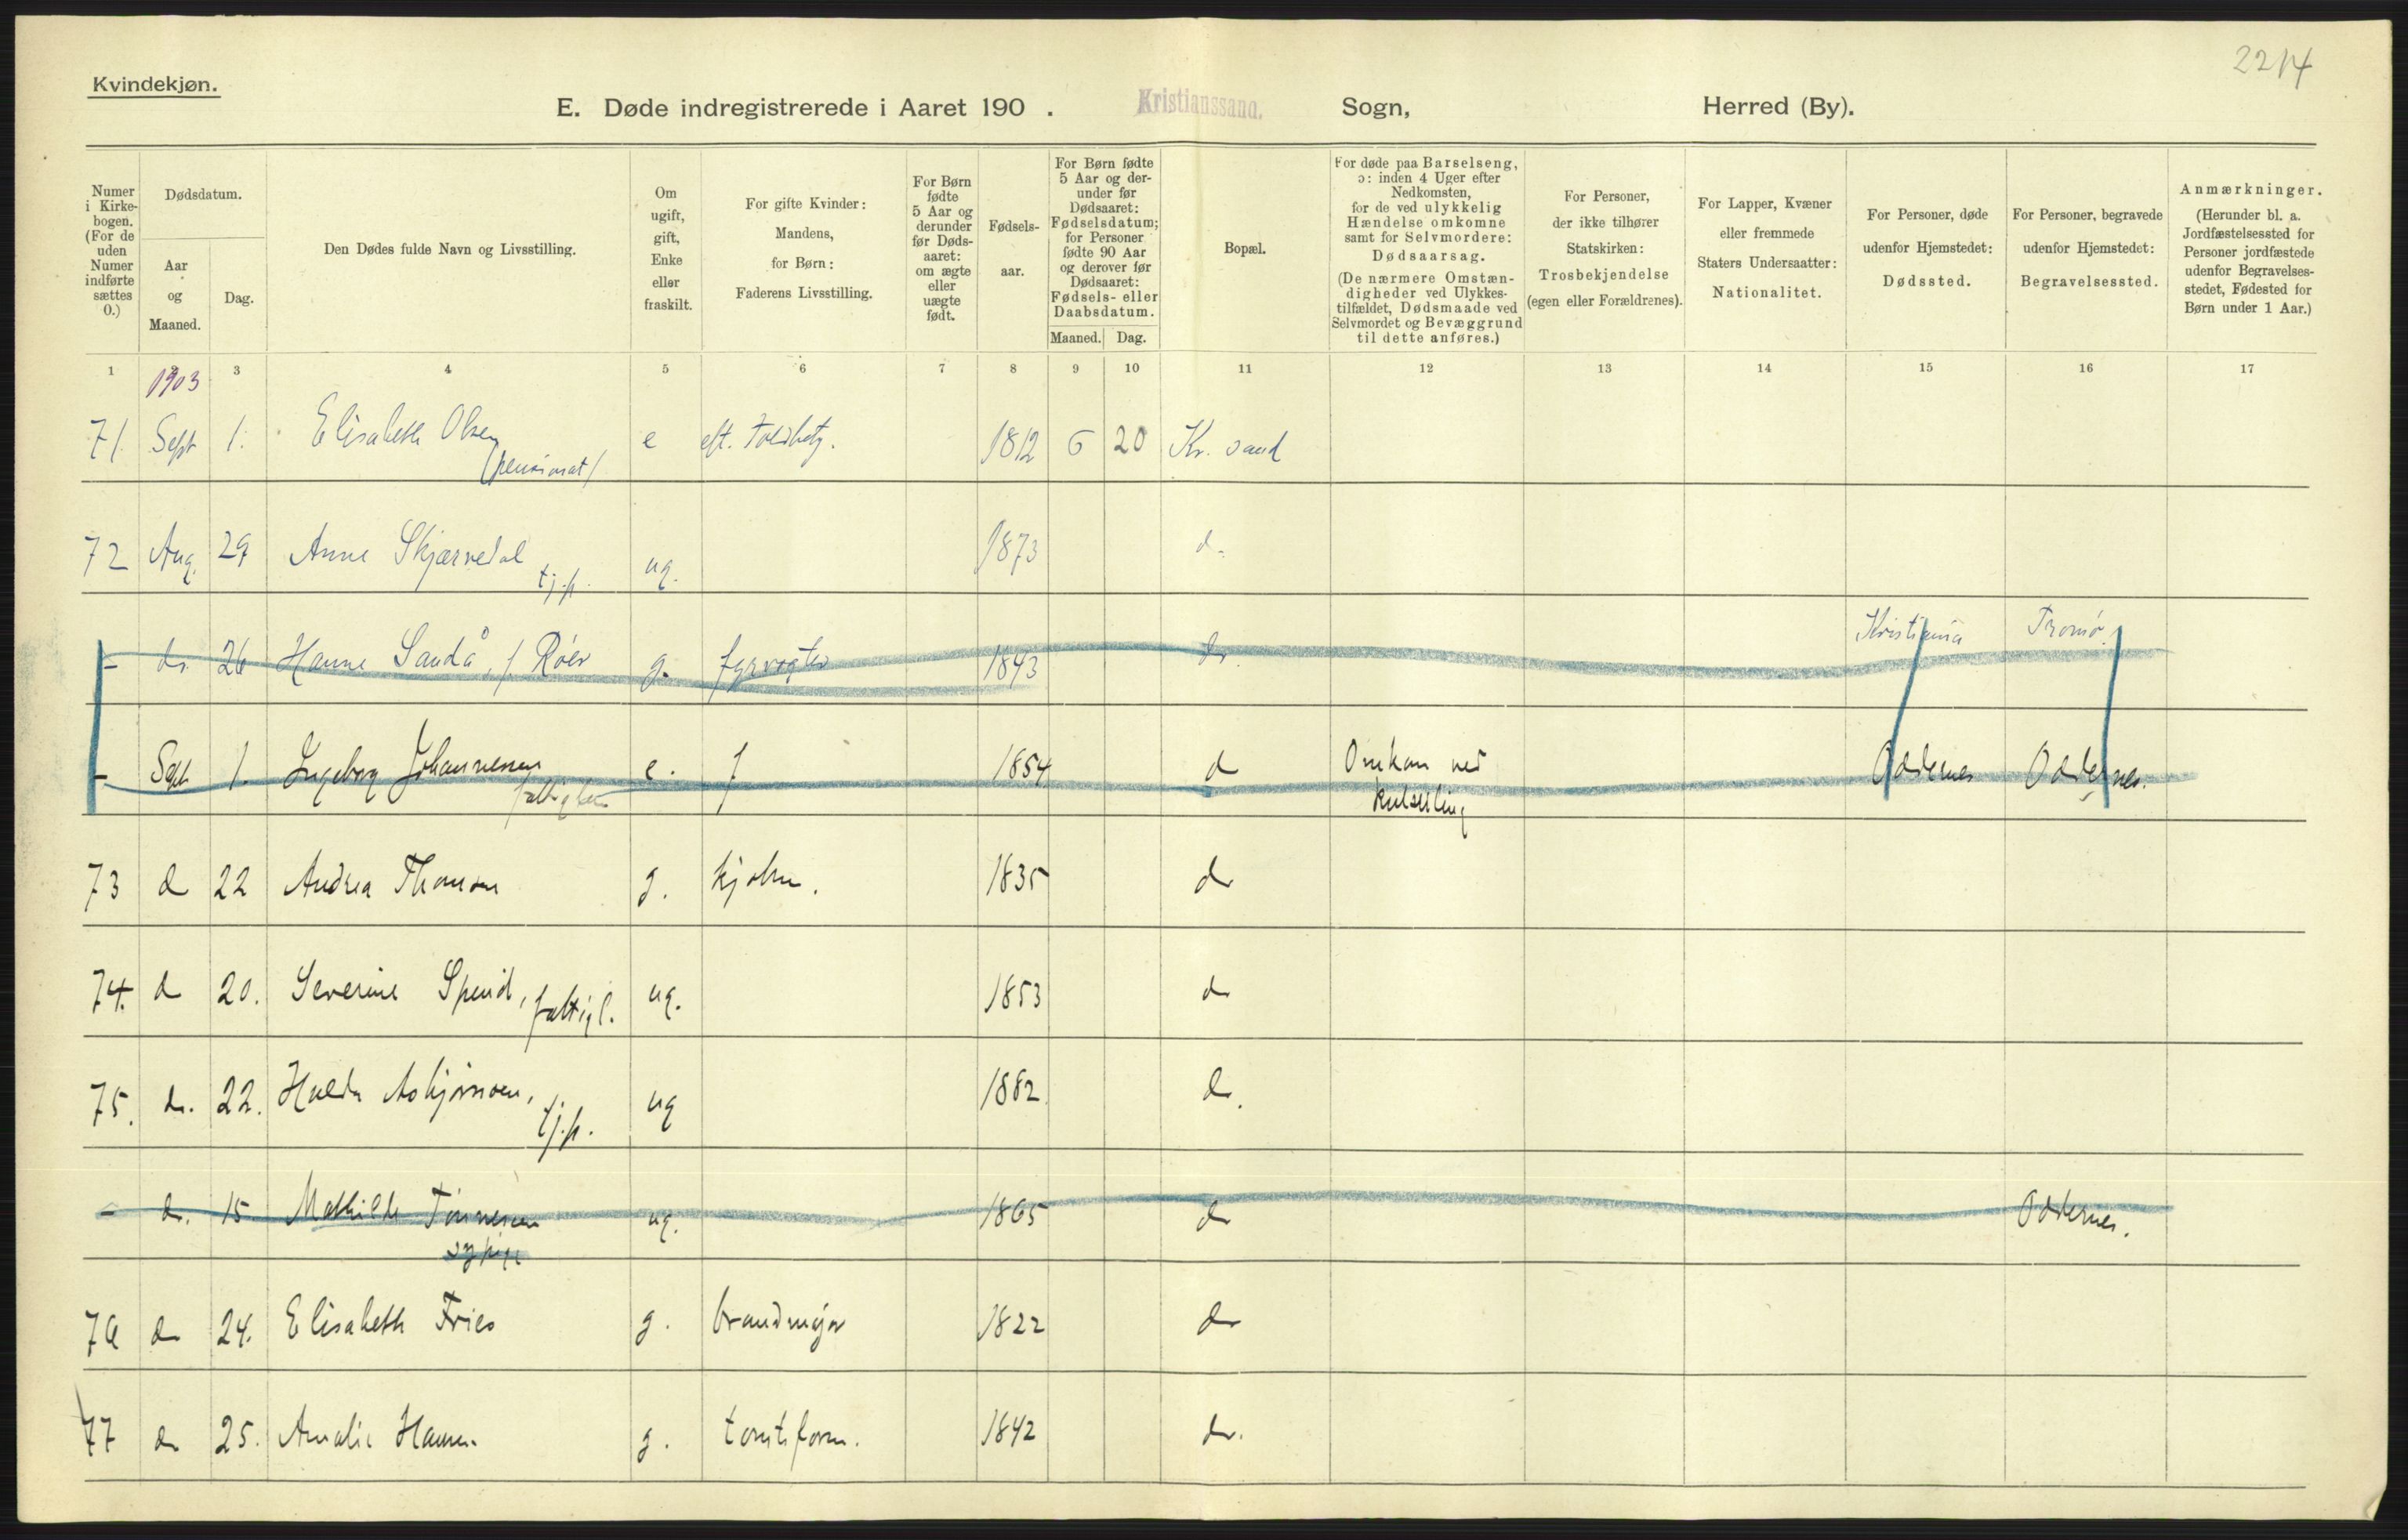 2214
Kvindekjøn.
E. Døde indregistrerede i Aaret 190 . Kristianssand. Sogn, Herred (By).
Numer i Kirkebogen. (For de uden Numer indførte sættes 0.)
Dødsdatum.
Aar og Maaned.
Dag.
Den Dødes fulde Navn og Livsstilling.
Om ugift, gift, Enke eller fraskilt.
For gifte Kvinder: Mandens, for Børn: Faderens Livsstilling.
For Børn fødte 5 Aar og derunder før Dødsaaret: om ægte eller uægte født.
Fødselsaar.
For Børn fødte 5 Aar og derunder før Dødsaaret: Fødselsdatum; for Personer fødte 90 Aar og derover før Dødsaaret: Fødsels- eller Daabsdatum.
Maaned. Dag.
Bopæl.
For døde paa Barselseng, ɔ: inden 4 Uger efter Nedkomsten, for de ved ulykkelig Hændelse omkomne samt for Selvmordere: Dødsaarsag. (De nærmere Omstændigheder ved Ulykkestilfældet, Dødsmaade ved Selvmordet og Bevæggrund til dette anføres.)
For Personer, der ikke tilhører Statskirken: Trosbekjendelse (egen eller Forældrenes).
For Lapper, Kvæner eller fremmede Staters Undersaatter: Nationalitet.
For Personer, døde udenfor Hjemstedet: Dødssted.
For Personer, begravede udenfor Hjemstedet: Begravelsessted.
Anmærkninger. (Herunder bl. a. Jordfæstelsessted for Personer jordfæstede udenfor Begravelsesstedet, Fødested for Børn under 1 Aar.)
1 2 3 4 5 6 7 8 9 10 11 12 13 14 15 16 17
1903
71 Sept 1. Elisabeth Olsen e eft. toldbetj. 1812 6 20 Kr. sand
(pensionat)
72 Aug. 29 Anne Skjærvedal ug. 1873 d.
tj.p.
Kristiania Tromø.
- do. 26 Hanne Sandå, f. Röer g. fyrvogter 1843 do.
- Sept 1. Ingeborg Johannesen e. f 1854 d Omkom ved Oddernes Oddernes.
fattiglem kulseiling
73 d 22 Andrea Thomsen g. kjøbm. 1835 do
74. d 20. Severine Speid, fattigl. ug. 1853 do
75. do. 22. Hulda Asbjørnsen, ug 1882. do.
tj.p.
- do. 15 Mathilde Tønnesen ug. 1865 do Oddernes.
sypige
76 do 24. Elisabeth Fries g. brandmajor 1822 do
77 do 25. Amalie Hansen g. tomtsform. 1842 do.